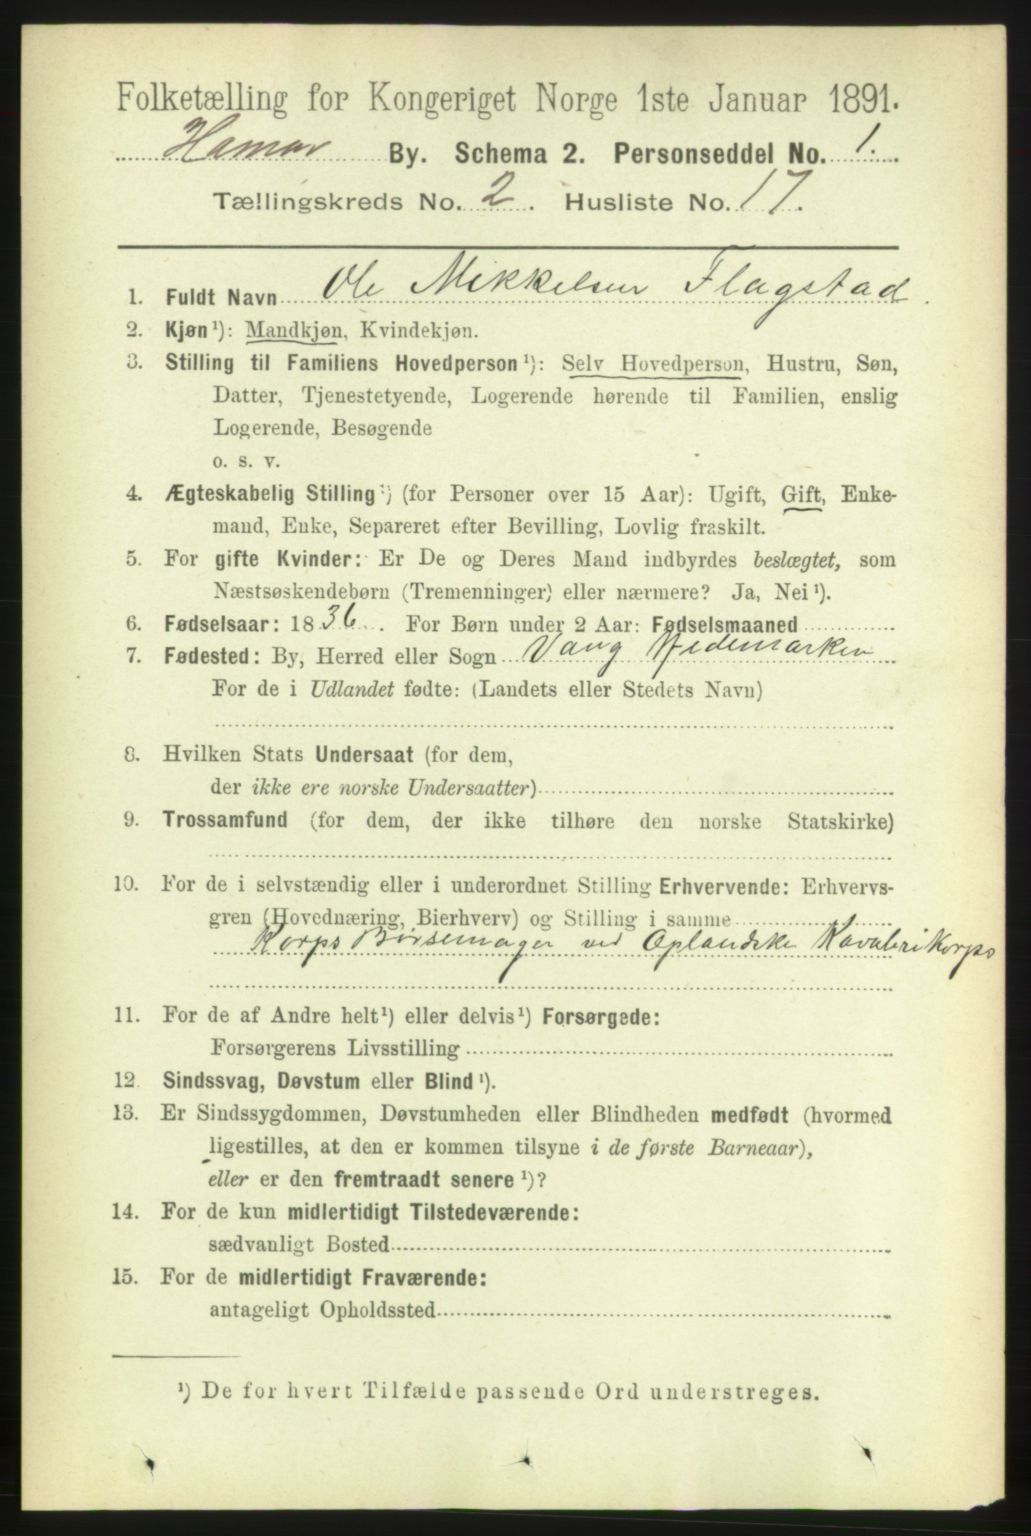 Folketælling for Kongeriget Norge 1ste Januar 1891.
Hamar By. Schema 2. Personseddel No. 1.
Tællingskreds No. 2. Husliste No. 17.
1. Fuldt Navn Ole Mikkelsen Flagstad.
2. Kjøn¹): Mandkjøn, Kvindekjøn.
3. Stilling til Familiens Hovedperson¹): Selv Hovedperson, Hustru, Søn,
Datter, Tjenestetyende, Logerende hørende til Familien, enslig
Logerende, Besøgende
o. s. v.
4. Ægteskabelig Stilling¹) (for Personer over 15 Aar): Ugift, Gift, Enke-
mand, Enke, Separeret efter Bevilling, Lovlig fraskilt.
5. For gifte Kvinder: Er De og Deres Mand indbyrdes beslægtet, som
Næstsøskendebørn (Tremenninger) eller nærmere? Ja, Nei¹).
6. Fødselsaar: 1836. For Børn under 2 Aar: Fødselsmaaned
7. Fødested: By, Herred eller Sogn Vang Hedemarken
For de i Udlandet fødte: (Landets eller Stedets Navn)
8. Hvilken Stats Undersaat (for dem,
der ikke ere norske Undersaatter)
9. Trossamfund (for dem, der ikke tilhøre den norske Statskirke)
10. For de i selvstændig eller i underordnet Stilling Erhvervende: Erhvervs-
gren (Hovednæring, Bierhverv) og Stilling i samme
Korps Børsemager ved Oplandske Kavaleri Korps
11. For de af Andre helt¹) eller delvis¹) Forsørgede:
Forsørgerens Livsstilling
12. Sindssvag, Døvstum eller Blind¹).
13. Er Sindssygdommen, Døvstumheden eller Blindheden medfødt (hvormed
ligestilles, at den er kommen tilsyne i de første Barneaar),
eller er den fremtraadt senere¹)?
14. For de kun midlertidigt Tilstedeværende:
sædvanligt Bosted
15. For de midlertidigt Fraværende:
antageligt Opholdssted
¹) De for hvert Tilfælde passende Ord understreges.